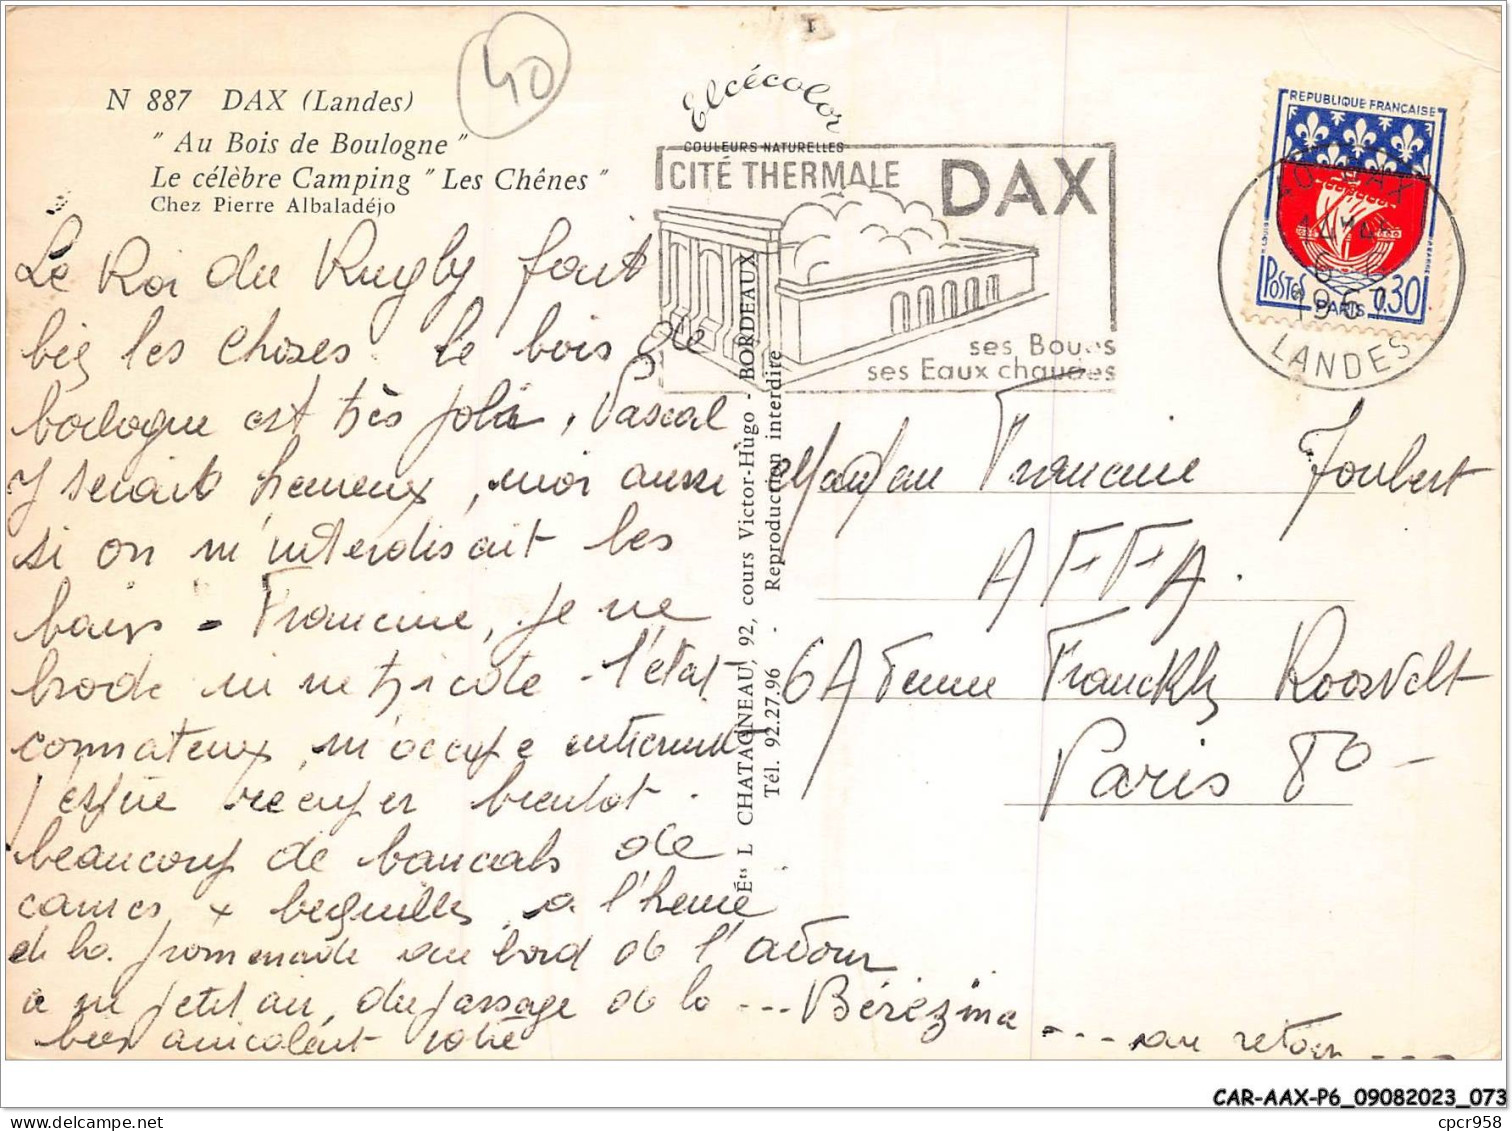 40
N 887 DAX (Landes)
" Au Bois de Boulogne "
Le célèbre Camping " Les Chênes "
Chez Pierre Albaladéjo
Elcécolor
COULEURS NATURELLES
CITÉ THERMALE DAX
ses Boues
ses Eaux chaudes
REPUBLIQUE FRANÇAISE
POSTES PARIS 0.30
40 DAX
14H45
1967
LANDES
Le Roi du Rugby fait
les choses le bois de
bologne est très joli, Pascal
y serait heureux, moi aussi
si on m'interdisait les
bains - Francine, je ne
brode ni ne tricote - l'état
comateux, m'occupe
récuper bientot.
beaucoup de bancals de
cannes, + bequilles, a l'heure
de la promenade au bord de l'adour
a un petit air, du passage de la ... Bérézina .... au retour ....
bien amicalement
ÉTS L CHATAGNEAU, 92, cours Victor-Hugo - BORDEAUX
Tél. 92.27.96 - Reproduction interdire
Francine Joubert
A F F A.
6 Avenue Franckly Roosvelt
Paris 8o -
CAR-AAX-P6_09082023_073
cpcr958